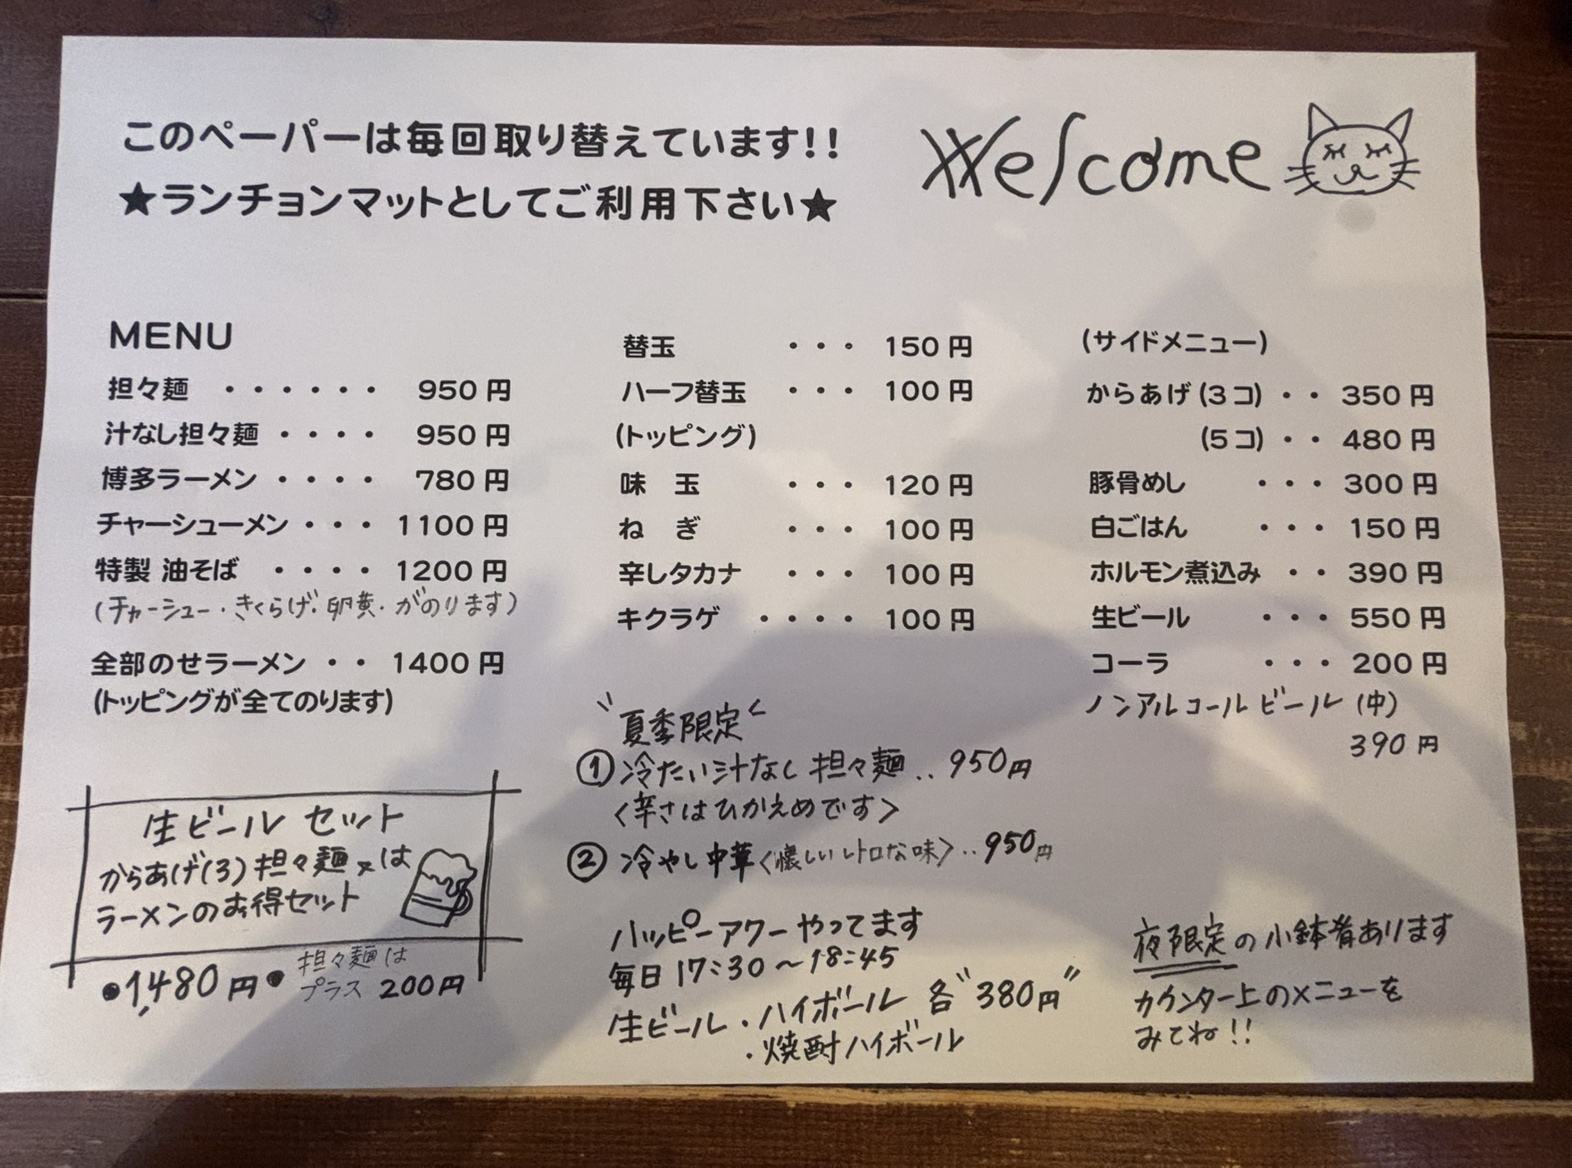 このペーパーは毎回取り替えています!!
★ランチョンマットとしてご利用下さい★
Welcome
MENU
担々麺 ・・・・・・ 950円
汁なし担々麺 ・・・・ 950円
博多ラーメン ・・・・ 780円
チャーシューメン ・・・ 1100円
特製 油そば ・・・・ 1200円
(チャーシュー・きくらげ・卵黄・がのります)
全部のせラーメン ・・ 1400円
(トッピングが全てのります)
生ビール セット
からあげ(3) 担々麺 又は
ラーメンのお得セット
●1,480円●
担々麺は
プラス 200円
替玉 ・・・ 150円
ハーフ替玉 ・・・ 100円
(トッピング)
味 玉 ・・・ 120円
ね ぎ ・・・ 100円
辛しタカナ ・・・ 100円
キクラゲ ・・・・ 100円
夏季限定
① 冷たい汁なし担々麺‥950円
〈辛さはひかえめです〉
② 冷やし中華〈懐しいレトロな味〉‥950円
ハッピーアワーやってます
毎日 17:30〜18:45
生ビール・ハイボール 各“380円”
・焼酎ハイボール
(サイドメニュー)
からあげ(3コ) ・・ 350円
(5コ) ・・ 480円
豚骨めし ・・・ 300円
白ごはん ・・・ 150円
ホルモン煮込み ・・ 390円
生ビール ・・・ 550円
コーラ ・・・ 200円
ノンアルコールビール (中)
390円
夜限定の小鉢肴あります
カウンター上のメニューを
みてね!!